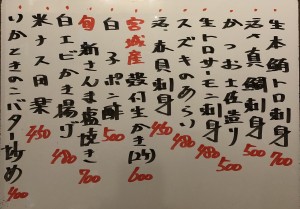 生本鮪トロ刺身 700
活〆真鯛刺身 500
かつお土佐造り 500
生トロサーモン刺身 480
スズキのあらい 480
活〆青貝刺身 450
宮城産 殻付生かき(2ケ) 600
白子ポン酢 500
旬 新さんま塩焼き 700
白エビかき揚げ 480
米ナス田楽 450
いかときのこバター炒め 400